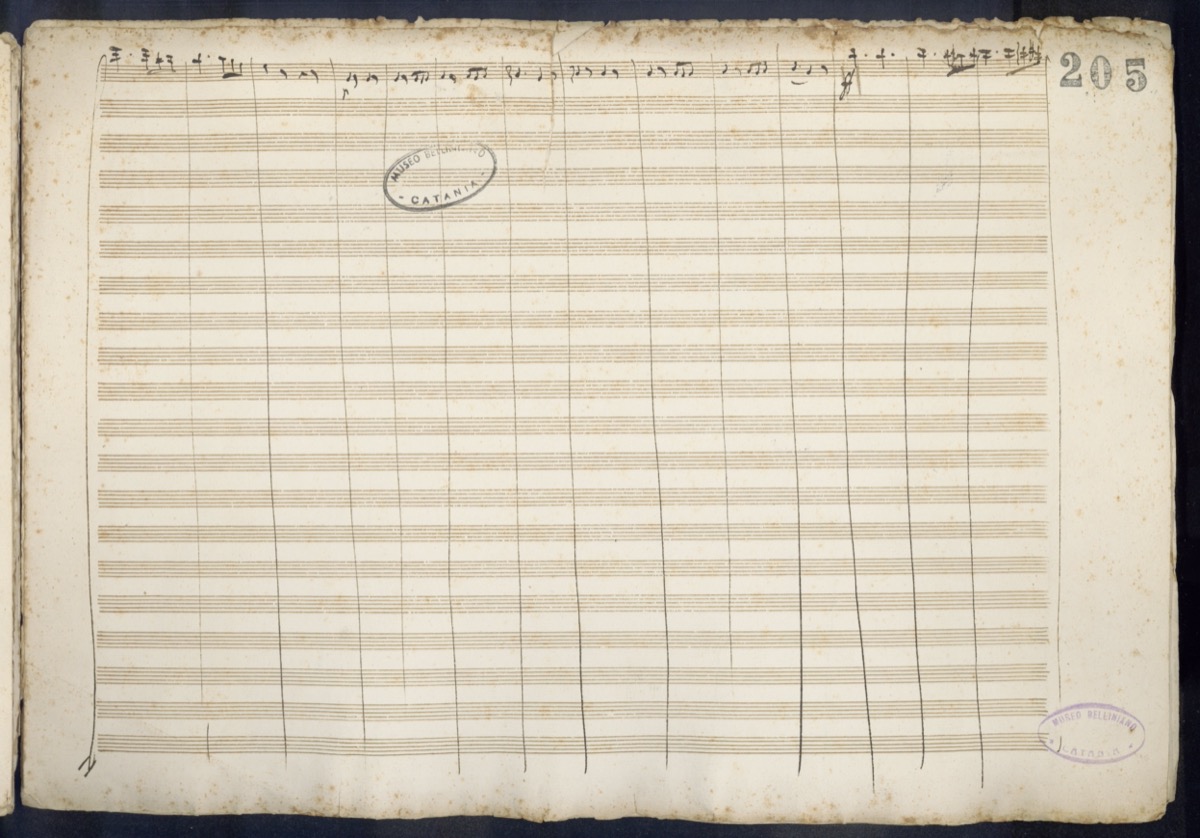 205
ff
MUSEO BELLINIANO
- CATANIA -
MUSEO BELLINIANO
CATANIA